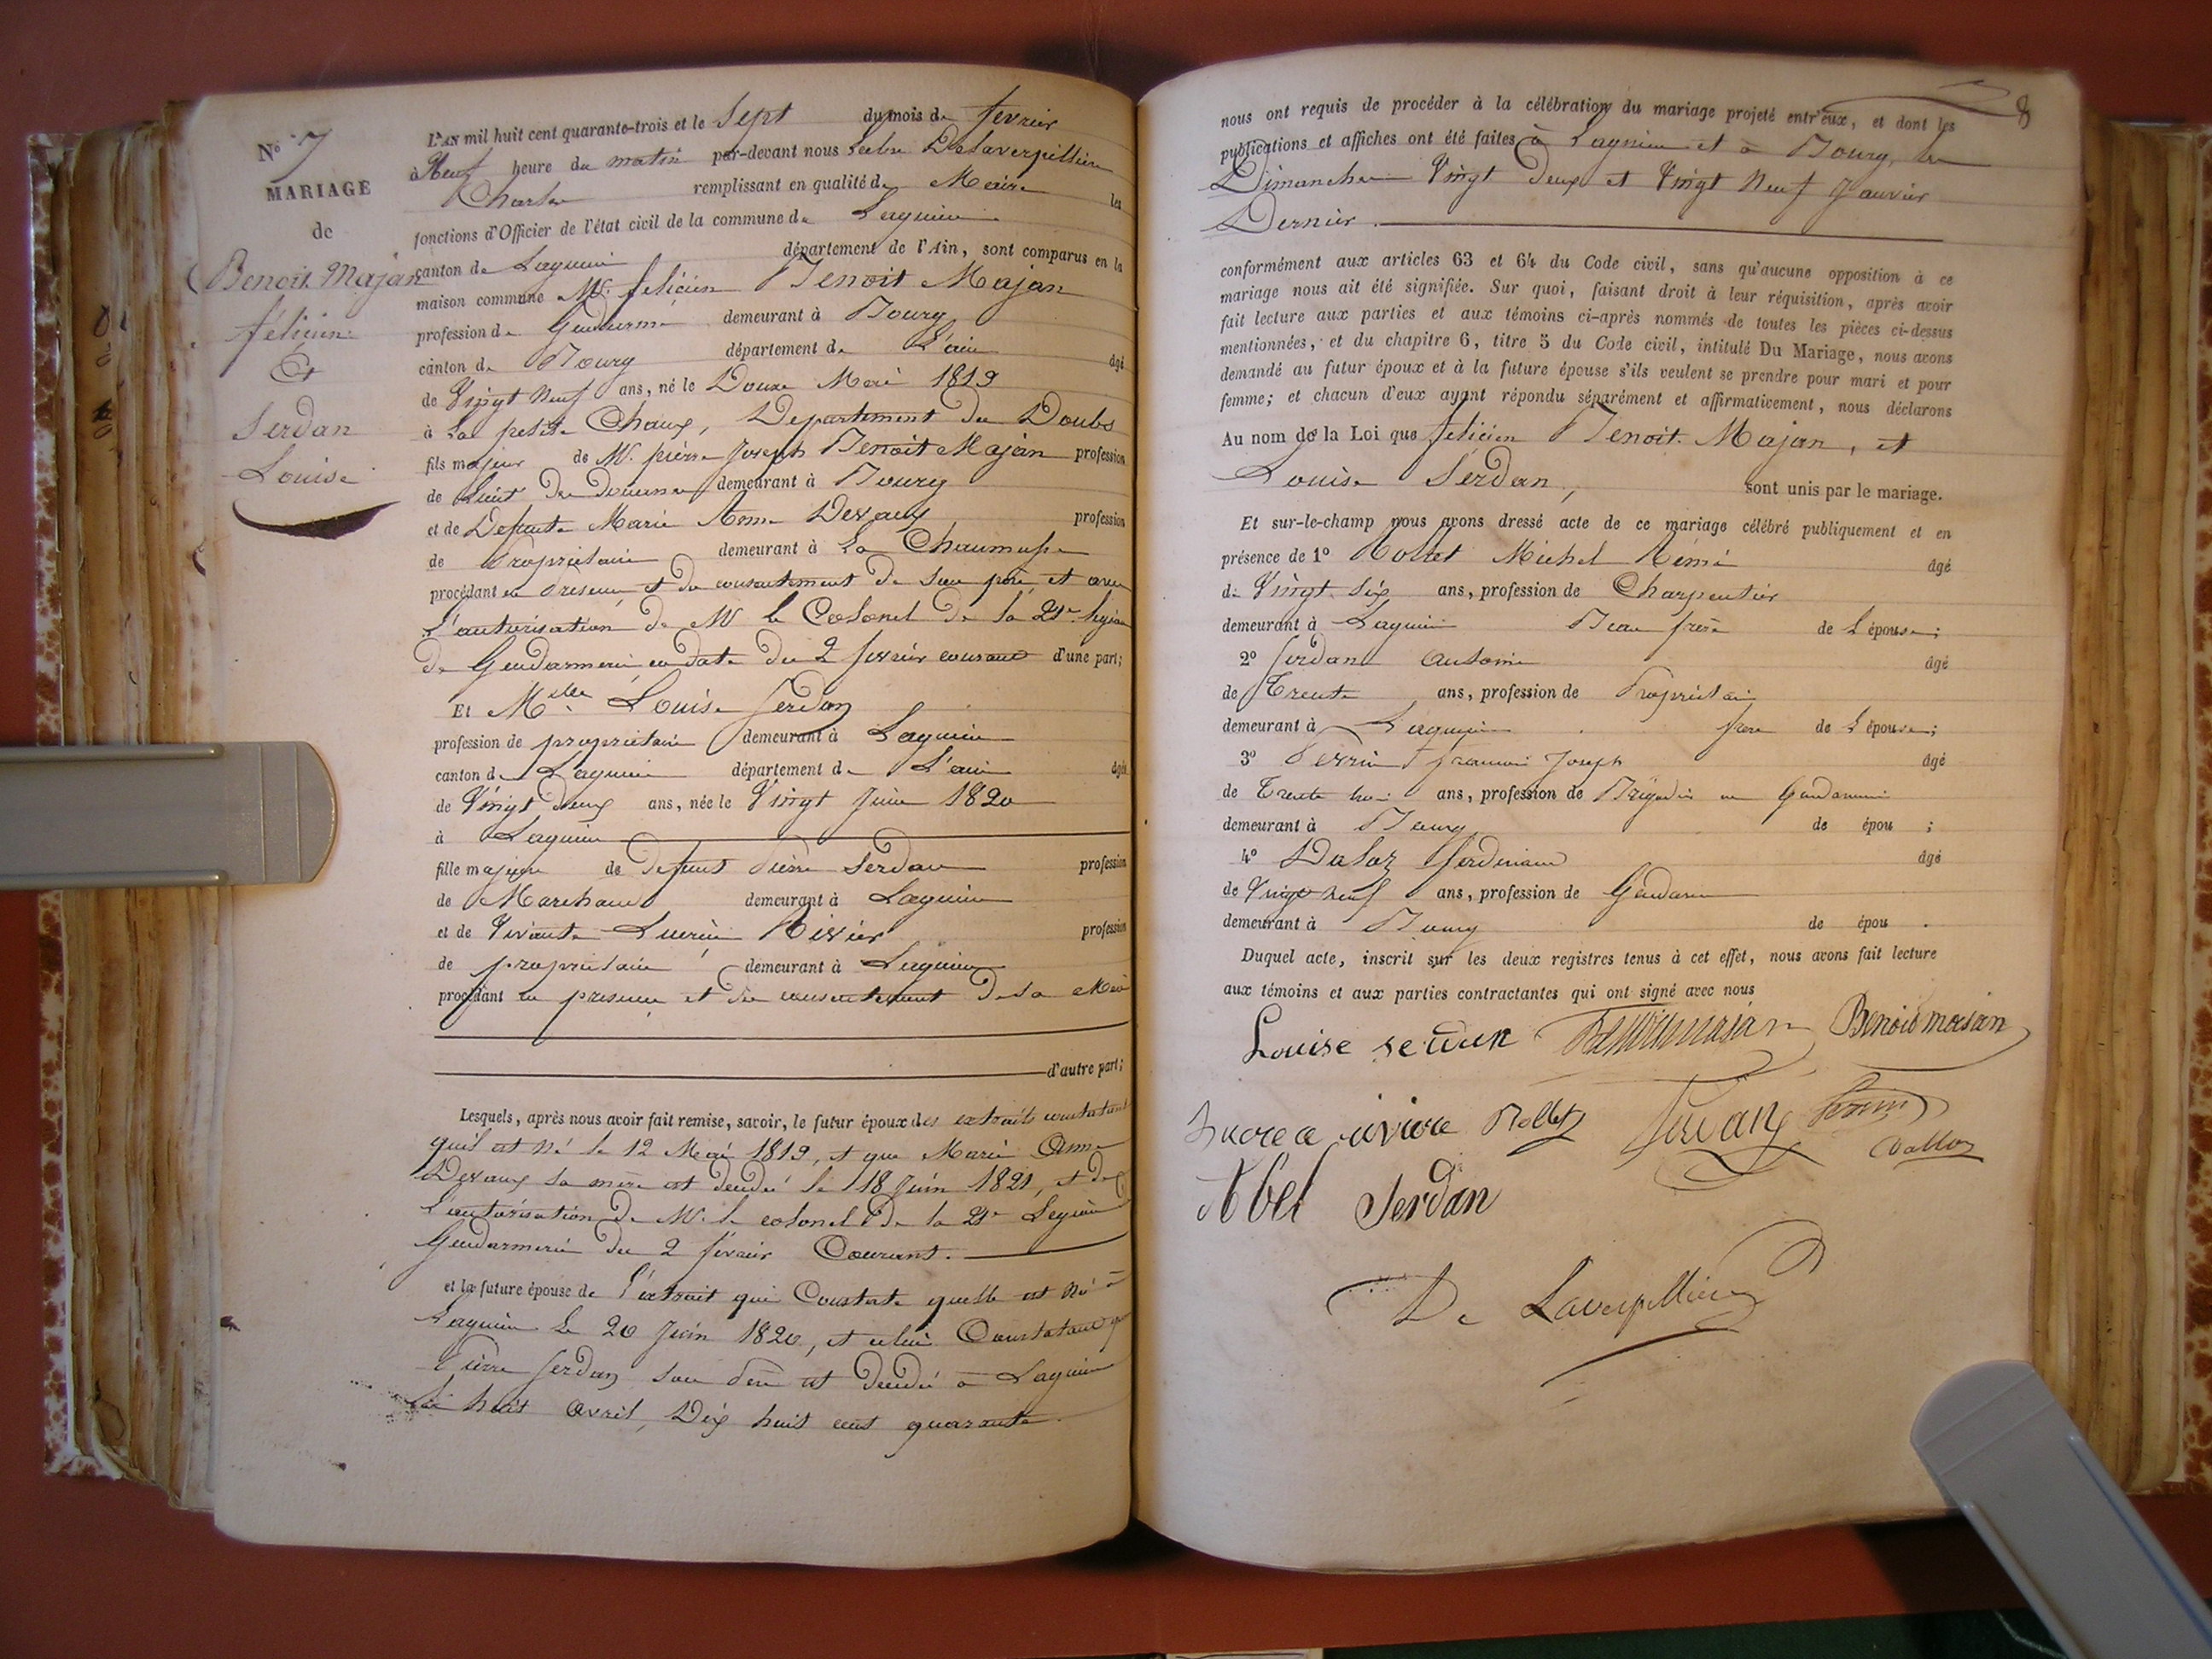 N° 7
MARIAGE
de
Benoit Majan
félicien
Et
Serdan
Louise
L'AN mil huit cent quarante-trois et le Sept du mois de fevrier
à Neuf heure du matin par-devant nous Delaverpillière
Charles remplissant en qualité de Maire les
fonctions d'Officier de l'état civil de la commune de Lagnieu
canton de Lagnieu département de l'Ain, sont comparus en la
maison commune Mr. felicien Benoit Majan
profession de Gendarme demeurant à Bourg
canton de Bourg département de L'ain âgé
de Vingt Neuf ans, né le Douze Mai 1819
à La petite Chaux, Departement du Doubs
fils majeur de Mr. pierre Joseph Benoit Majan profession
de Lieut De Douanes demeurant à Bourg
et de Defunte Marie Anne Devaux profession
de Propriétaire demeurant à La Chaumusse
procédant en presence et du consentement de son père et avec
L'autorisation de Mr le Colonel de la 21e legion
De Gendarmerie en date du 2 fevrier courant d'une part;
Et Melle Louise Serdan
profession de propriétaire demeurant à Lagnieu
canton de Lagnieu département de L'ain âgée
de Vingt deux ans, née le Vingt Juin 1820
à Lagnieu
fille majeure de Defunt Pierre Serdan profession
de Marchand demeurant à Lagnieu
et de Vivante Rivier profession
de propriétaire demeurant à Lagnieu
procédant en presence et du consentement De sa Mère
d'autre part;
Lesquels, après nous avoir fait remise, savoir, le futur époux des extraits constatant
qu'il est Né le 12 Mai 1819, et que Marie Anne
Devaux sa mère est décédée le 18 Juin 1821, et de
L'autorisation De Mr. le colonel De la 21e Legion
Gendarmerie du 2 fevrier Courant.
et la future épouse de l'extrait qui Constate quelle est Née à
Lagnieu Le 20 Juin 1820, et celui Constatant que
Pierre Serdan son père est décédé à Lagnieu
le huit Avril, Dix huit cent quarante.
8
nous ont requis de procéder à la célébration du mariage projeté entr'eux, et dont les
publications et affiches ont été faites à Lagnieu et à Bourg, les
Dimanches Vingt Deux et Vingt Neuf Janvier
Dernier.
conformément aux articles 63 et 64 du Code civil, sans qu'aucune opposition à ce
mariage nous ait été signifiée. Sur quoi, faisant droit à leur réquisition, après avoir
fait lecture aux parties et aux témoins ci-après nommés de toutes les pièces ci-dessus
mentionnées, et du chapitre 6, titre 5 du Code civil, intitulé Du Mariage, nous avons
demandé au futur époux et à la future épouse s'ils veulent se prendre pour mari et pour
femme; et chacun d'eux ayant répondu séparément et affirmativement, nous déclarons
Au nom de la Loi que felicien Benoit Majan, et
Louise Serdan, sont unis par le mariage.
Et sur-le-champ nous avons dressé acte de ce mariage célébré publiquement et en
présence de 1° Mollet Michel Rémi âgé
de Vingt Six ans, profession de Charpentier
demeurant à Lagnieu Beau frère de L'épouse;
2° Serdan Antoine âgé
de Trente ans, profession de Propriétaire
demeurant à Lagnieu frere de L'épouse;
3° Perrin francois Joseph âgé
de Trente trois ans, profession de Brigadier en Gendarmerie
demeurant à Bourg de épou ;
4° Daloz ferdinand âgé
de Vingt neuf ans, profession de Gendarme
demeurant à Bourg de épou .
Duquel acte, inscrit sur les deux registres tenus à cet effet, nous avons fait lecture
aux témoins et aux parties contractantes qui ont signé avec nous
Louise Benoitmajan Benoit majan
Mollet Serdan Perrin
Dalloz
Abel Serdan
De Laverpillière